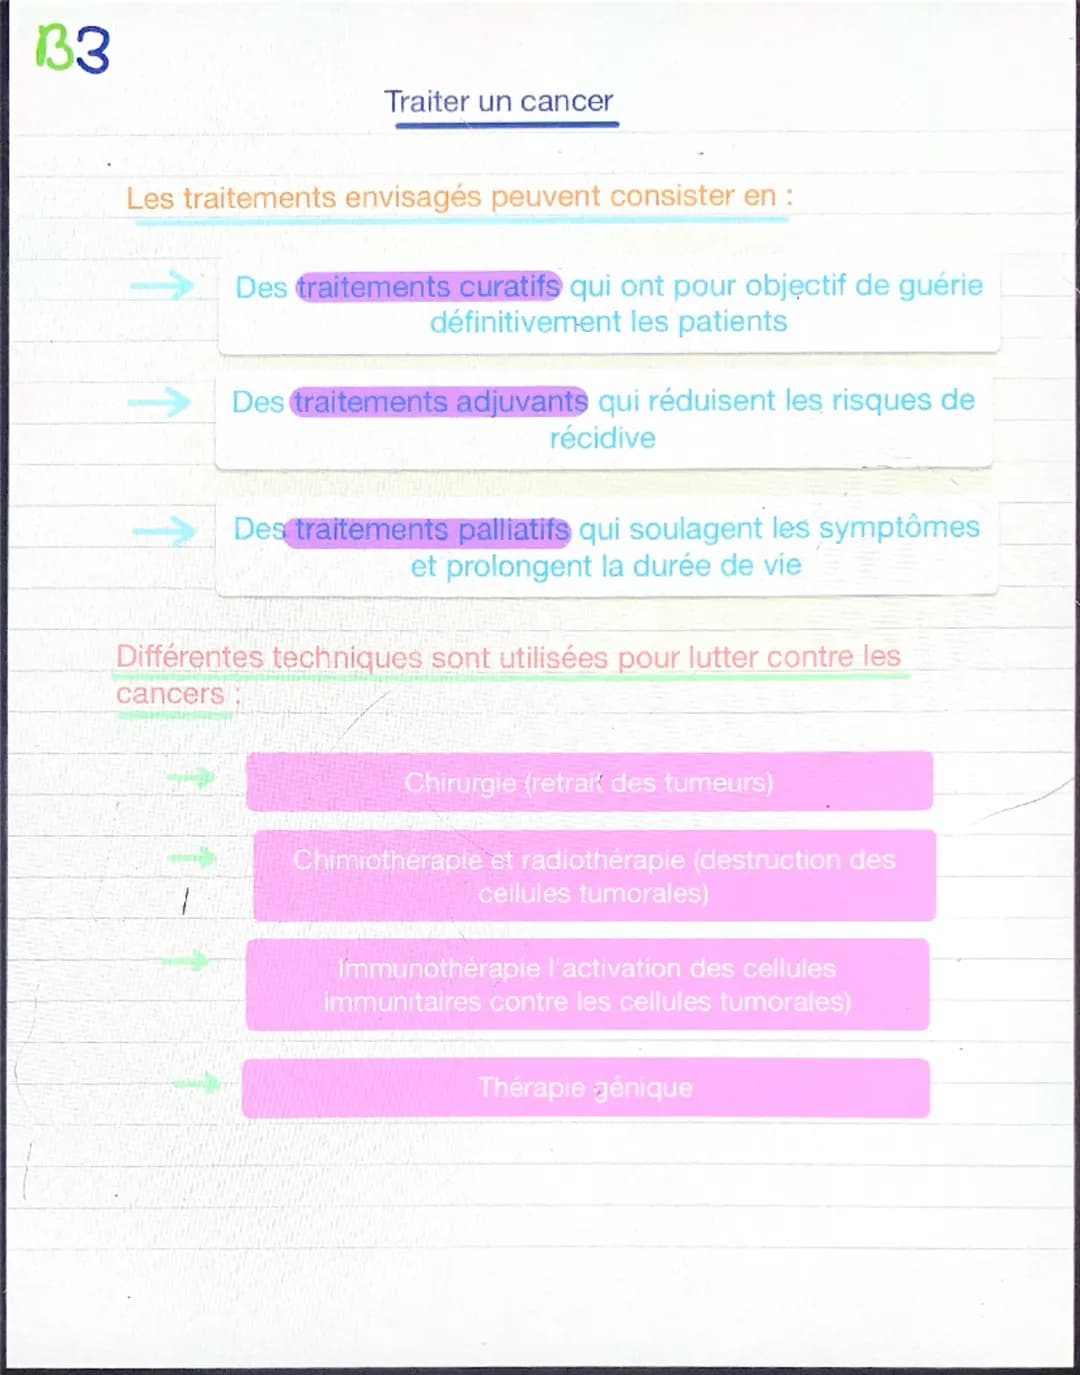 B3
Traiter un cancer
Les traitements envisagés peuvent consister en :
Des traitements curatifs qui ont pour objectif de guérie
définitivement les patients
Des traitements adjuvants qui réduisent les risques de
récidive
Des traitements palliatifs qui soulagent les symptômes
et prolongent la durée de vie
Différentes techniques sont utilisées pour lutter contre les
cancers :
Chirurgie (retrait des tumeurs)
Chimiothérapie et radiothérapie (destruction des
cellules tumorales)
Immunothérapie l'activation des cellules
immunitaires contre les cellules tumorales)
Thérapie génique